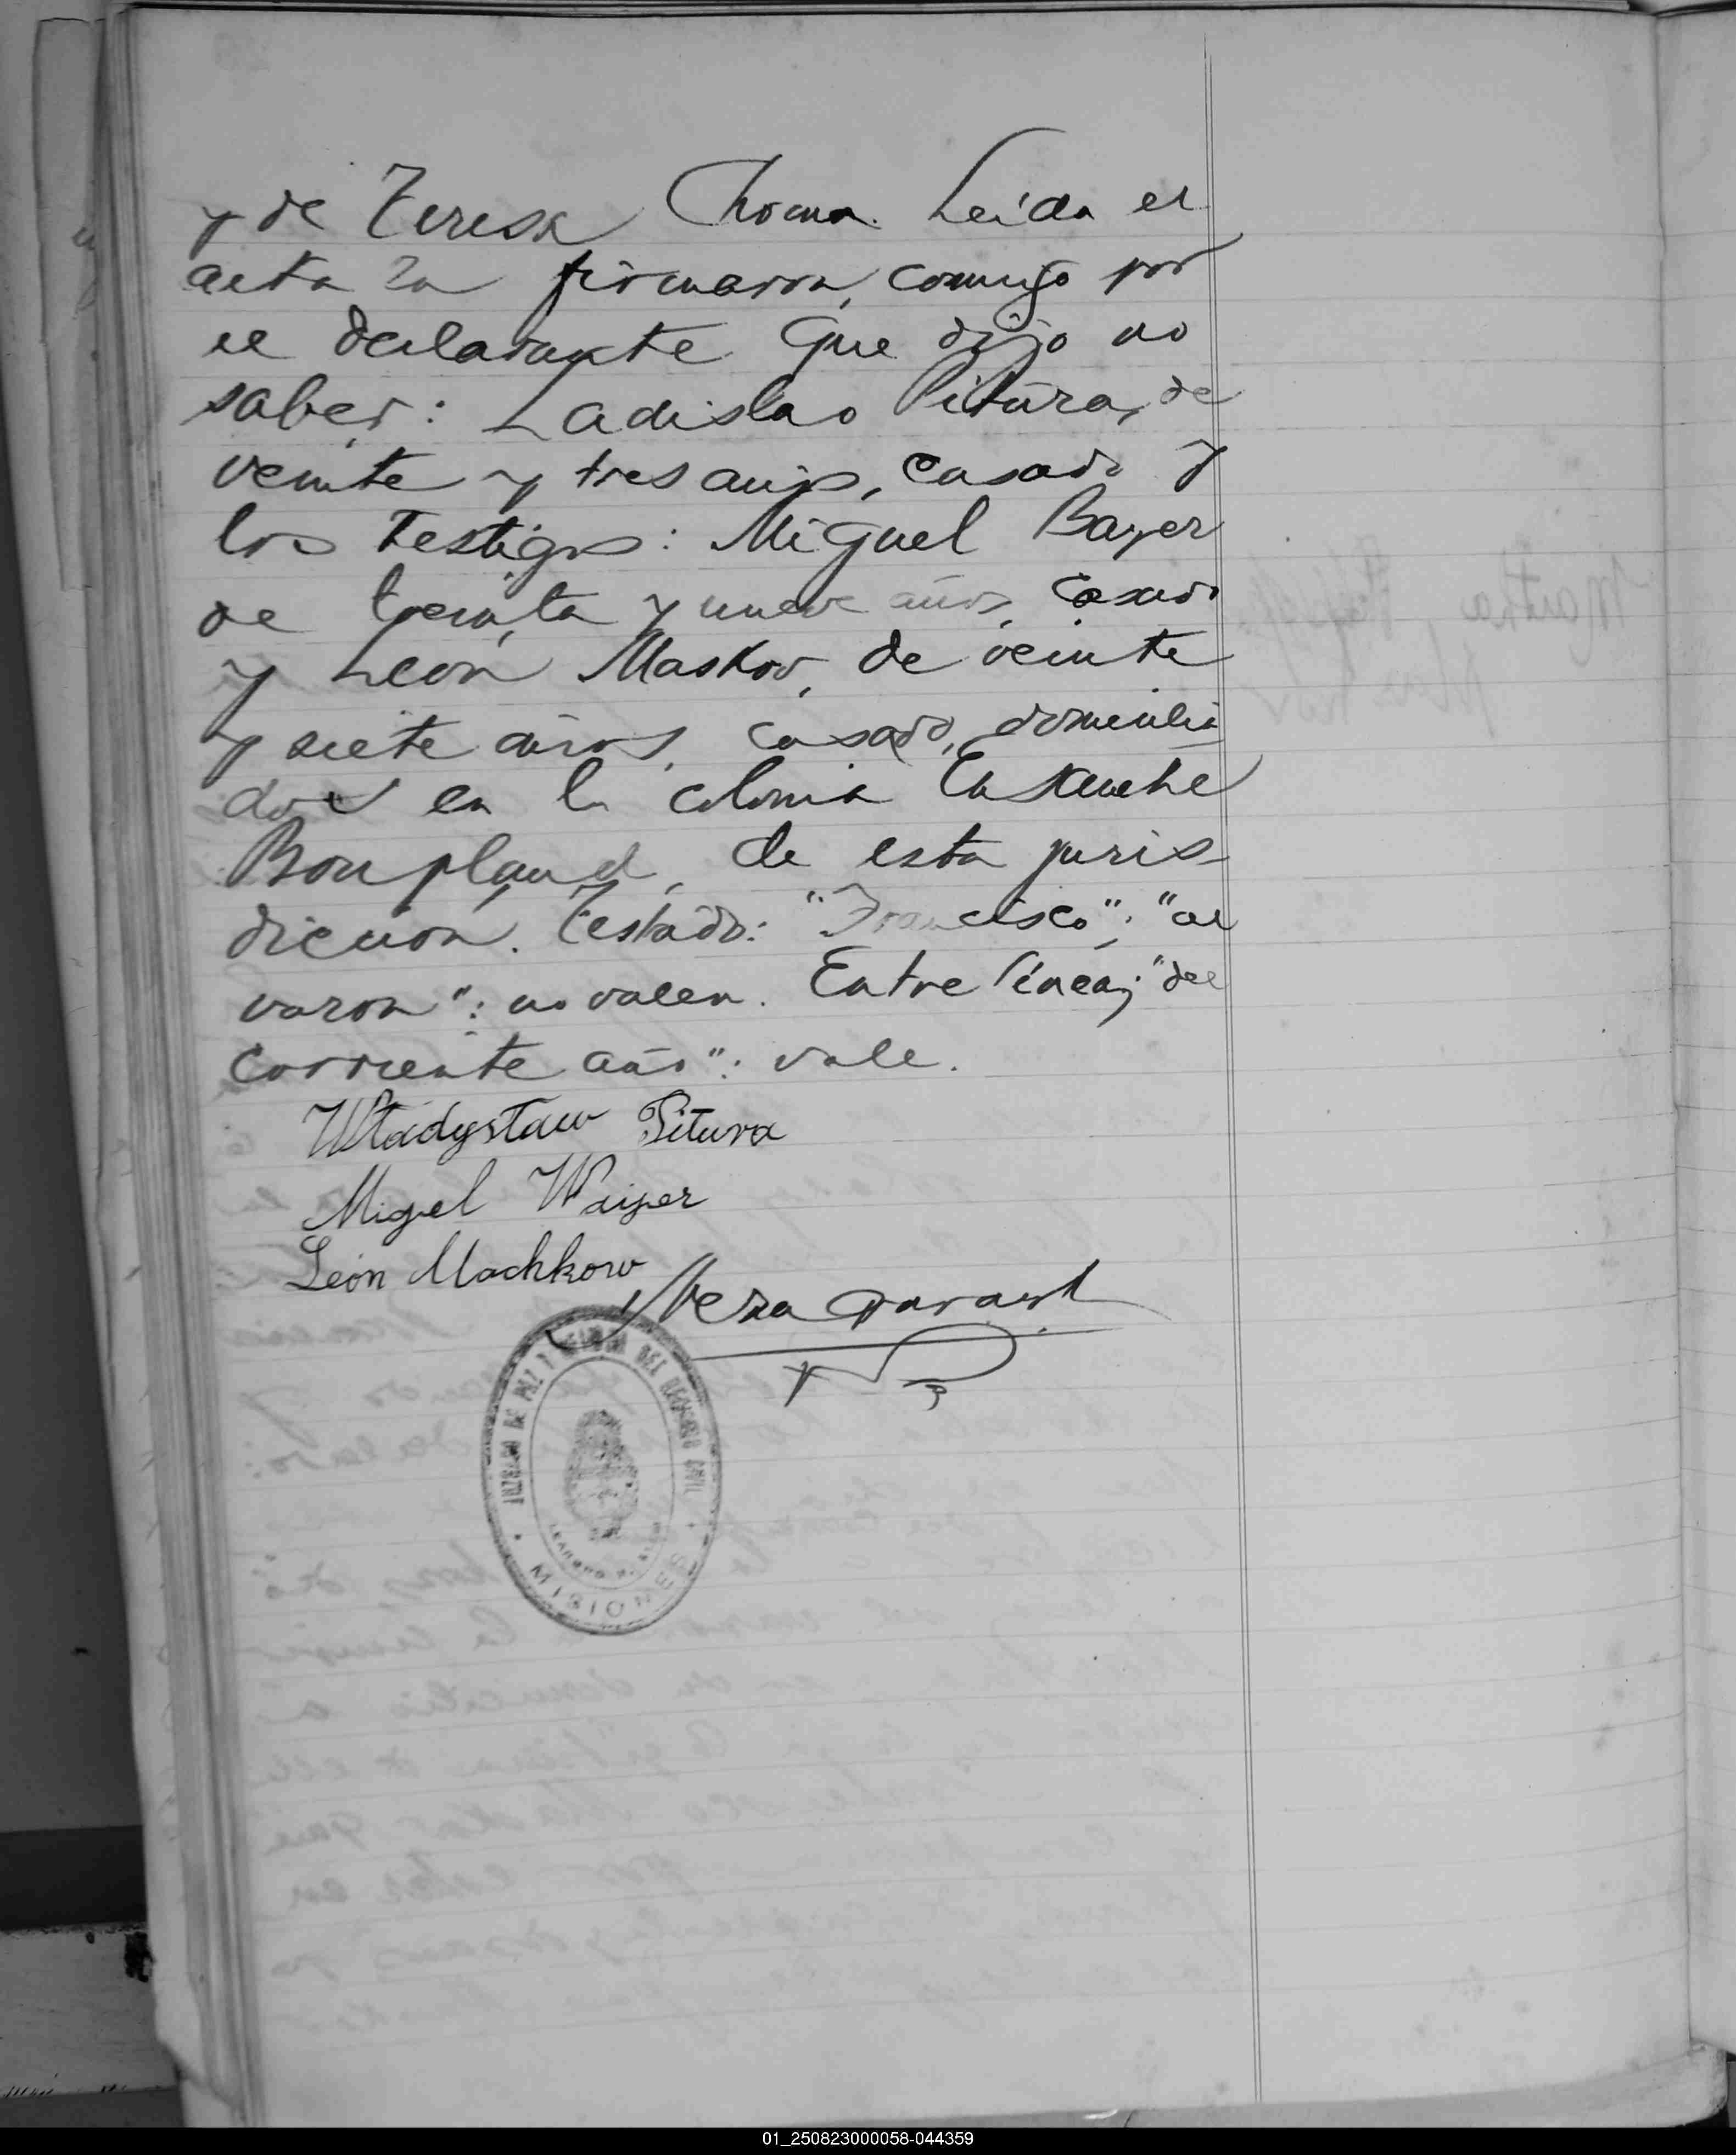 y de Teresa Choma. Leída el
acta la firmaron, conmigo por
el declarante que dijo no
saber: Ladislao Pitura, de
veinte y tres años, casado y
los testigos: Miguel Bayer
de treinta y nueve años, casado
y León Maskov, de veinte
y siete años, casado, domicilia
dos en la colonia Ensanche
Bonpland, de esta juris
dicción. Testado: "Francisco"; "al
varon": no valen. Entre líneas; "del
corriente año": vale.
Władysław Pitura
Miguel Waiper
León Machkow
JUZGADO DE PAZ Y OFICINA DEL REGISTRO CIVIL
LEANDRO N. ALEM
MISIONES
01_250823000058-044359